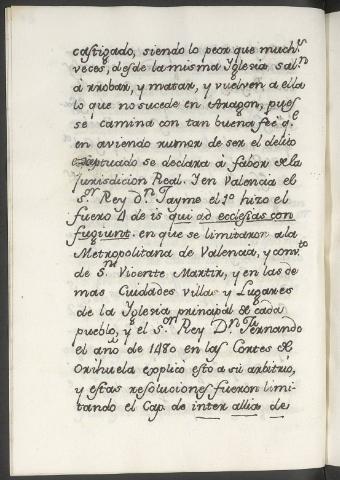 castigado, siendo lo peor que much.s
veces, desde la misma Yglesia sal.n
à rrobar, y matar, y vuelven a ella
lo que no sucede en Aragon, pues
se camina con tan buena feè q.e
en aviendo rumor de ser el delito
exceptuado se declara à fabor de la
Jurisdicion Real. Y en Valencia el
S.or Rey D.n Jayme el 1º hizo el
fuero 4 de is qui ad ecclesias con
fugiunt. en que se limitaron a la
Metropolitana de Valencia, y conv.to
de S.n Vicente Martir, y en las de
mas Cuidades villas y Lugares
de la Yglesia principal de cada
pueblo, y el S.or Rey D.n Fernando
el año de 1480 en las Cortes de
Orihuela explicò esto a su arbitrio,
y estas resoluciones fueron limi-
tando el Cap. de inter allia de